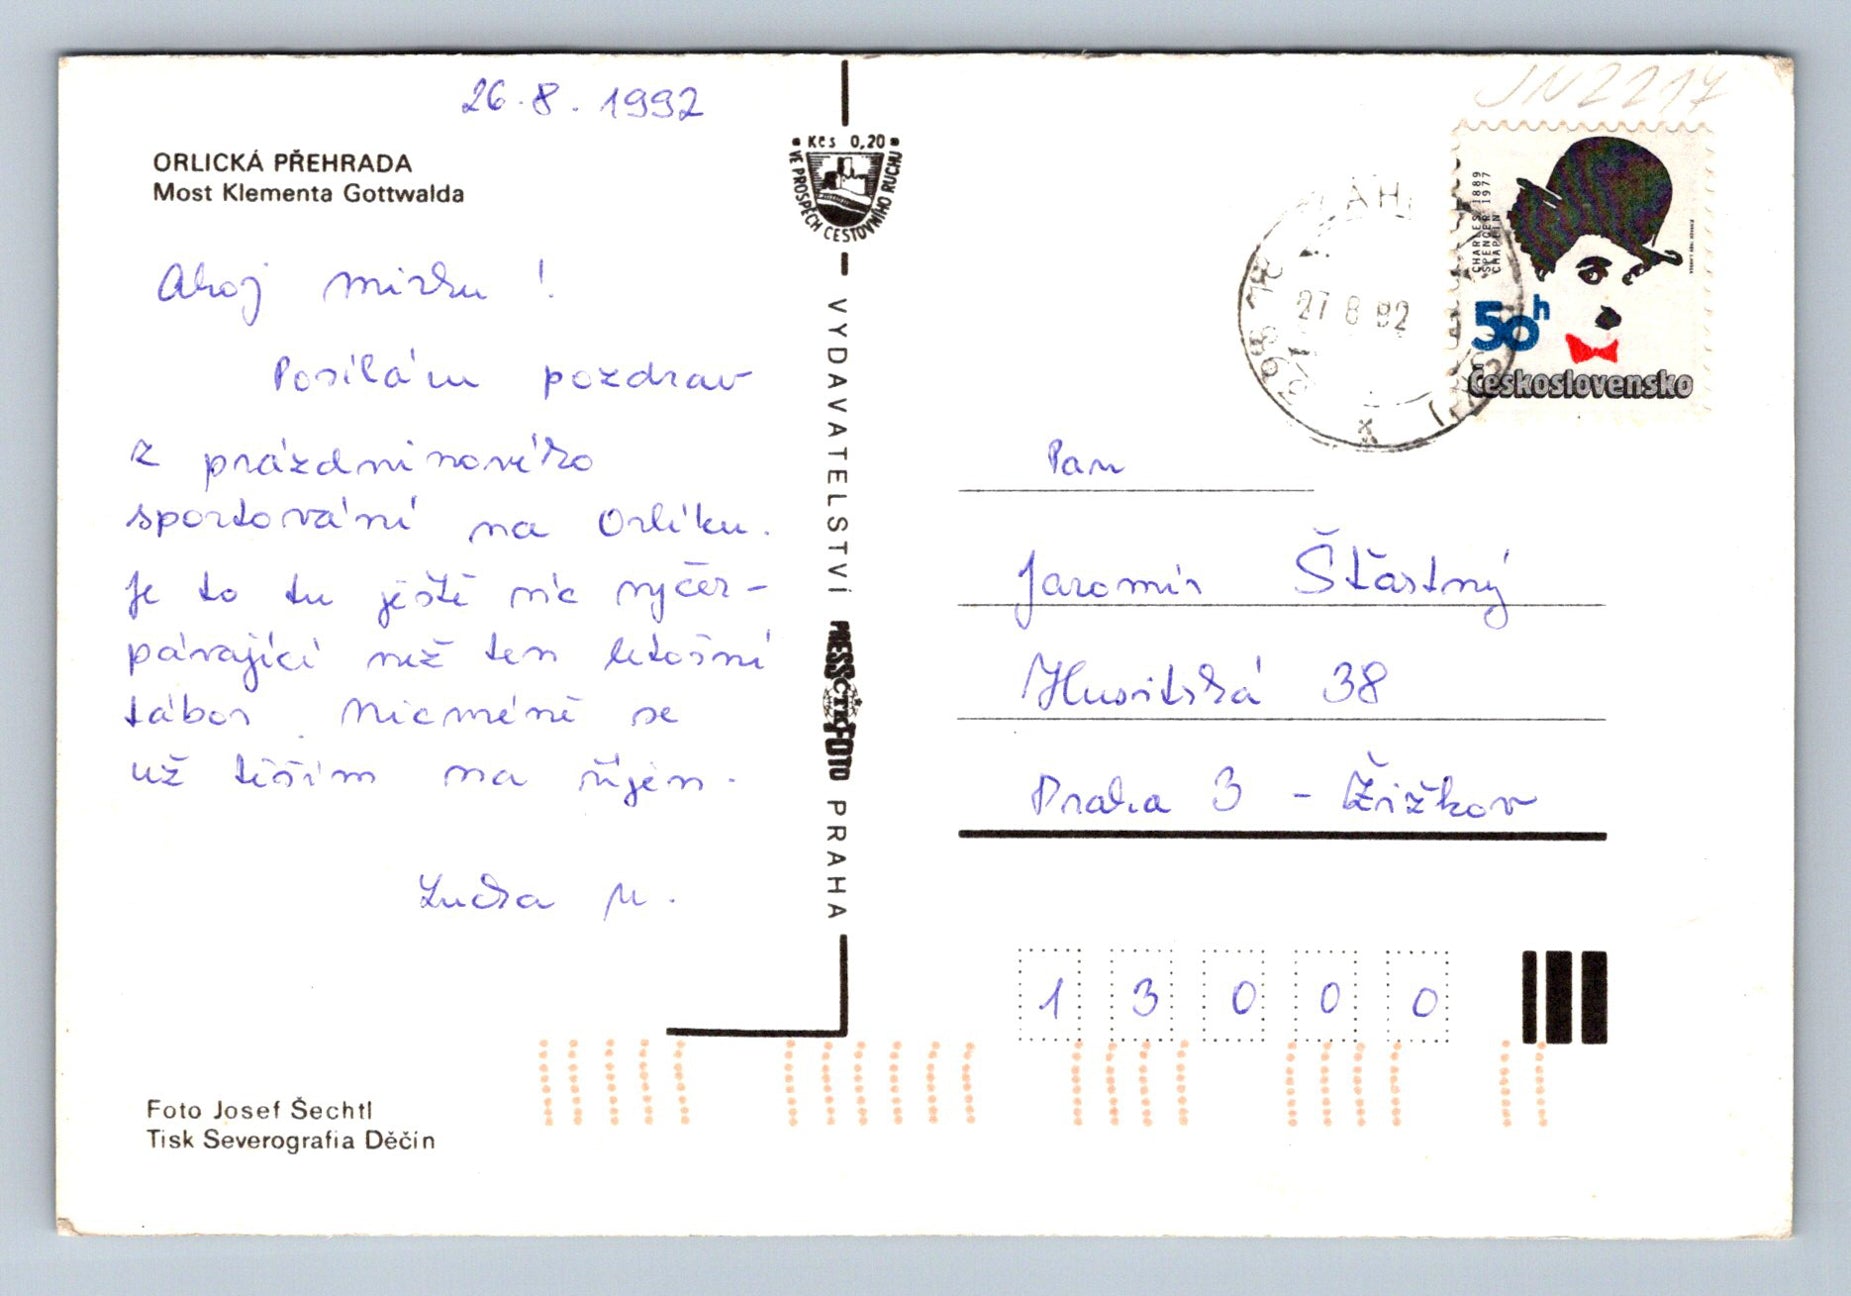 26.8.1992
ORLICKÁ PŘEHRADA
Most Klementa Gottwalda
Ahoj mirku !
Posílám pozdrav
z prázdninového
sportování na Orlíku.
Je to tu ještě víc vyčer-
pávající než ten letošní
tábor. Nicméně se
už těším na říjen.
Lucka M.
Foto Josef Šechtl
Tisk Severografia Děčín
Kčs 0,20
VE PROSPĚCH CESTOVNÍHO RUCHU
VYDAVATELSTVÍ PRESSFOTO PRAHA
ČTK
JN2217
CHARLES 1889
SPENCER 1977
CHAPLIN
50h
Československo
27 8 92
Pan
Jaromír Šťastný
Husitská 38
Praha 3 - Žižkov
1 3 0 0 0